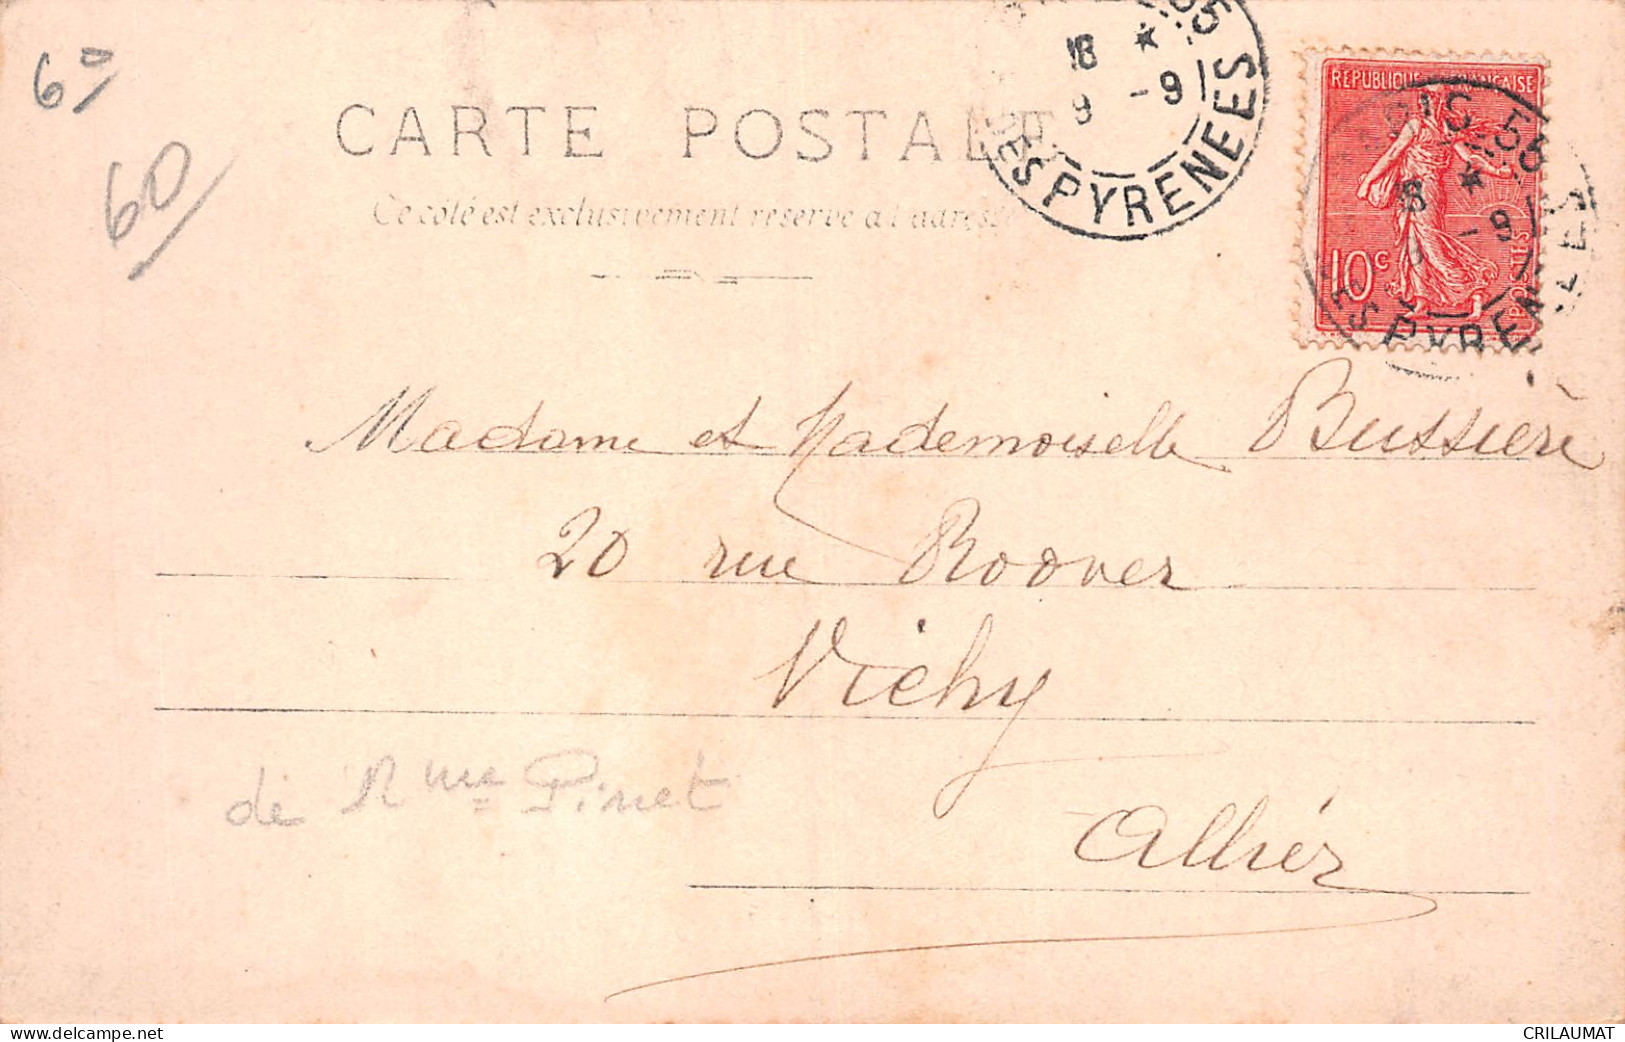 6º
60
CARTE POSTALE
Ce côté est exclusivement réservé à l'adresse
55
18 * 9 -9
DES PYRENEES
REPUBLIQUE FRANÇAISE
PARIS.55
18 * -9
POSTES
10c
DES PYRENEES
Madame et Mademoiselle Bussière
20 rue Roover
Vichy
de Mme Pinet
Allier
www.delcampe.net
CRILAUMAT